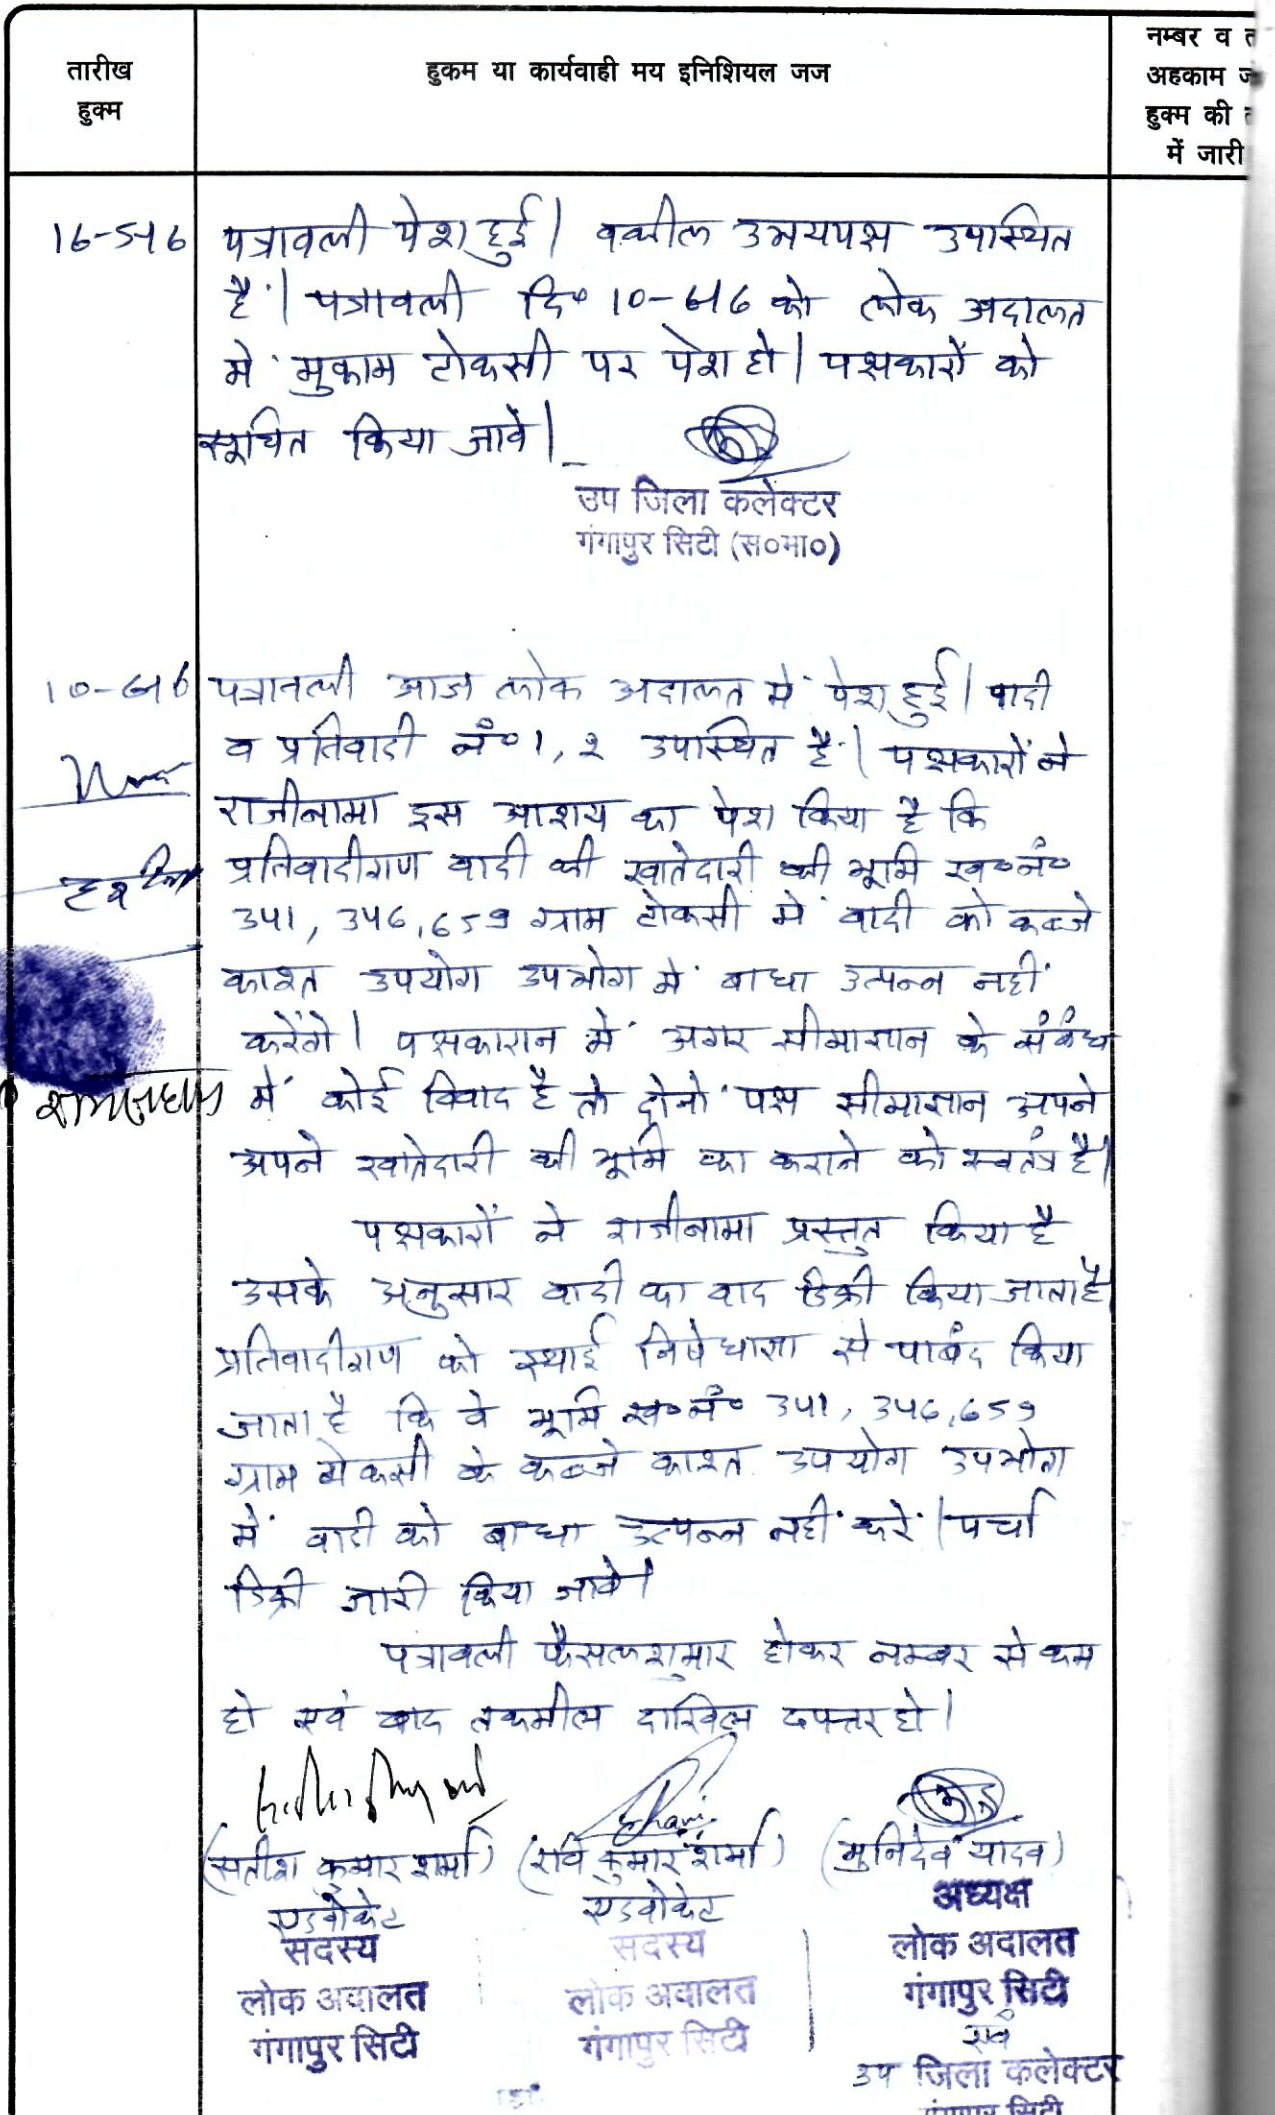 तारीख
हुक्म
हुकम या कार्यवाही मय इनिशियल जज
नम्बर व त
अहकाम ज
हुक्म की त
में जारी
16-5-16
पत्रावली पेश हुई। वकील उभयपक्ष उपस्थित
है। पत्रावली दि० 10-6-16 को लोक अदालत
में मुकाम टोकसी पर पेश हो। पक्षकारों को
सूचित किया जावें।
उप जिला कलेक्टर
गंगापुर सिटी (स०मा०)
10-6-16
पत्रावली आज लोक अदालत में पेश हुई। वादी
व प्रतिवादी नं० 1, २ उपस्थित है। पक्षकारों ने
राजीनामा इस आशय का पेश किया है कि
प्रतिवादीगण वादी की खातेदारी की भूमि ख०नं०
341, 346, 659 ग्राम टोकसी में वादी को कब्जे
काश्त उपयोग उपभोग में बाधा उत्पन्न नहीं
करेंगे। पक्षकारान में अगर सीमाज्ञान के संबंध
में कोई विवाद है तो दोनों पक्ष सीमाज्ञान अपने
अपने खातेदारी की भूमि का कराने को स्वतंत्र है।
पक्षकारों ने राजीनामा प्रस्तुत किया है
उसके अनुसार वादी का वाद डिक्री किया जाता है
प्रतिवादीगण को स्थाई निषेधाज्ञा से पाबंद किया
जाता है कि वे भूमि ख०नं० 341, 346, 659
ग्राम टोकसी के कब्जे काश्त उपयोग उपभोग
में वादी को बाधा उत्पन्न नहीं करें। पर्चा
डिक्री जारी किया जावे।
पत्रावली फैसलशुमार होकर नम्बर से कम
हो एवं बाद तकमील दाखिल दफ्तर हो।
(सतीश कुमार शर्मा) (रवि कुमार शर्मा) (मुनिदेव यादव)
एडवोकेट एडवोकेट अध्यक्ष
सदस्य सदस्य लोक अदालत
लोक अदालत लोक अदालत गंगापुर सिटी
गंगापुर सिटी गंगापुर सिटी एवं
उप जिला कलेक्टर
गंगापुर सिटी